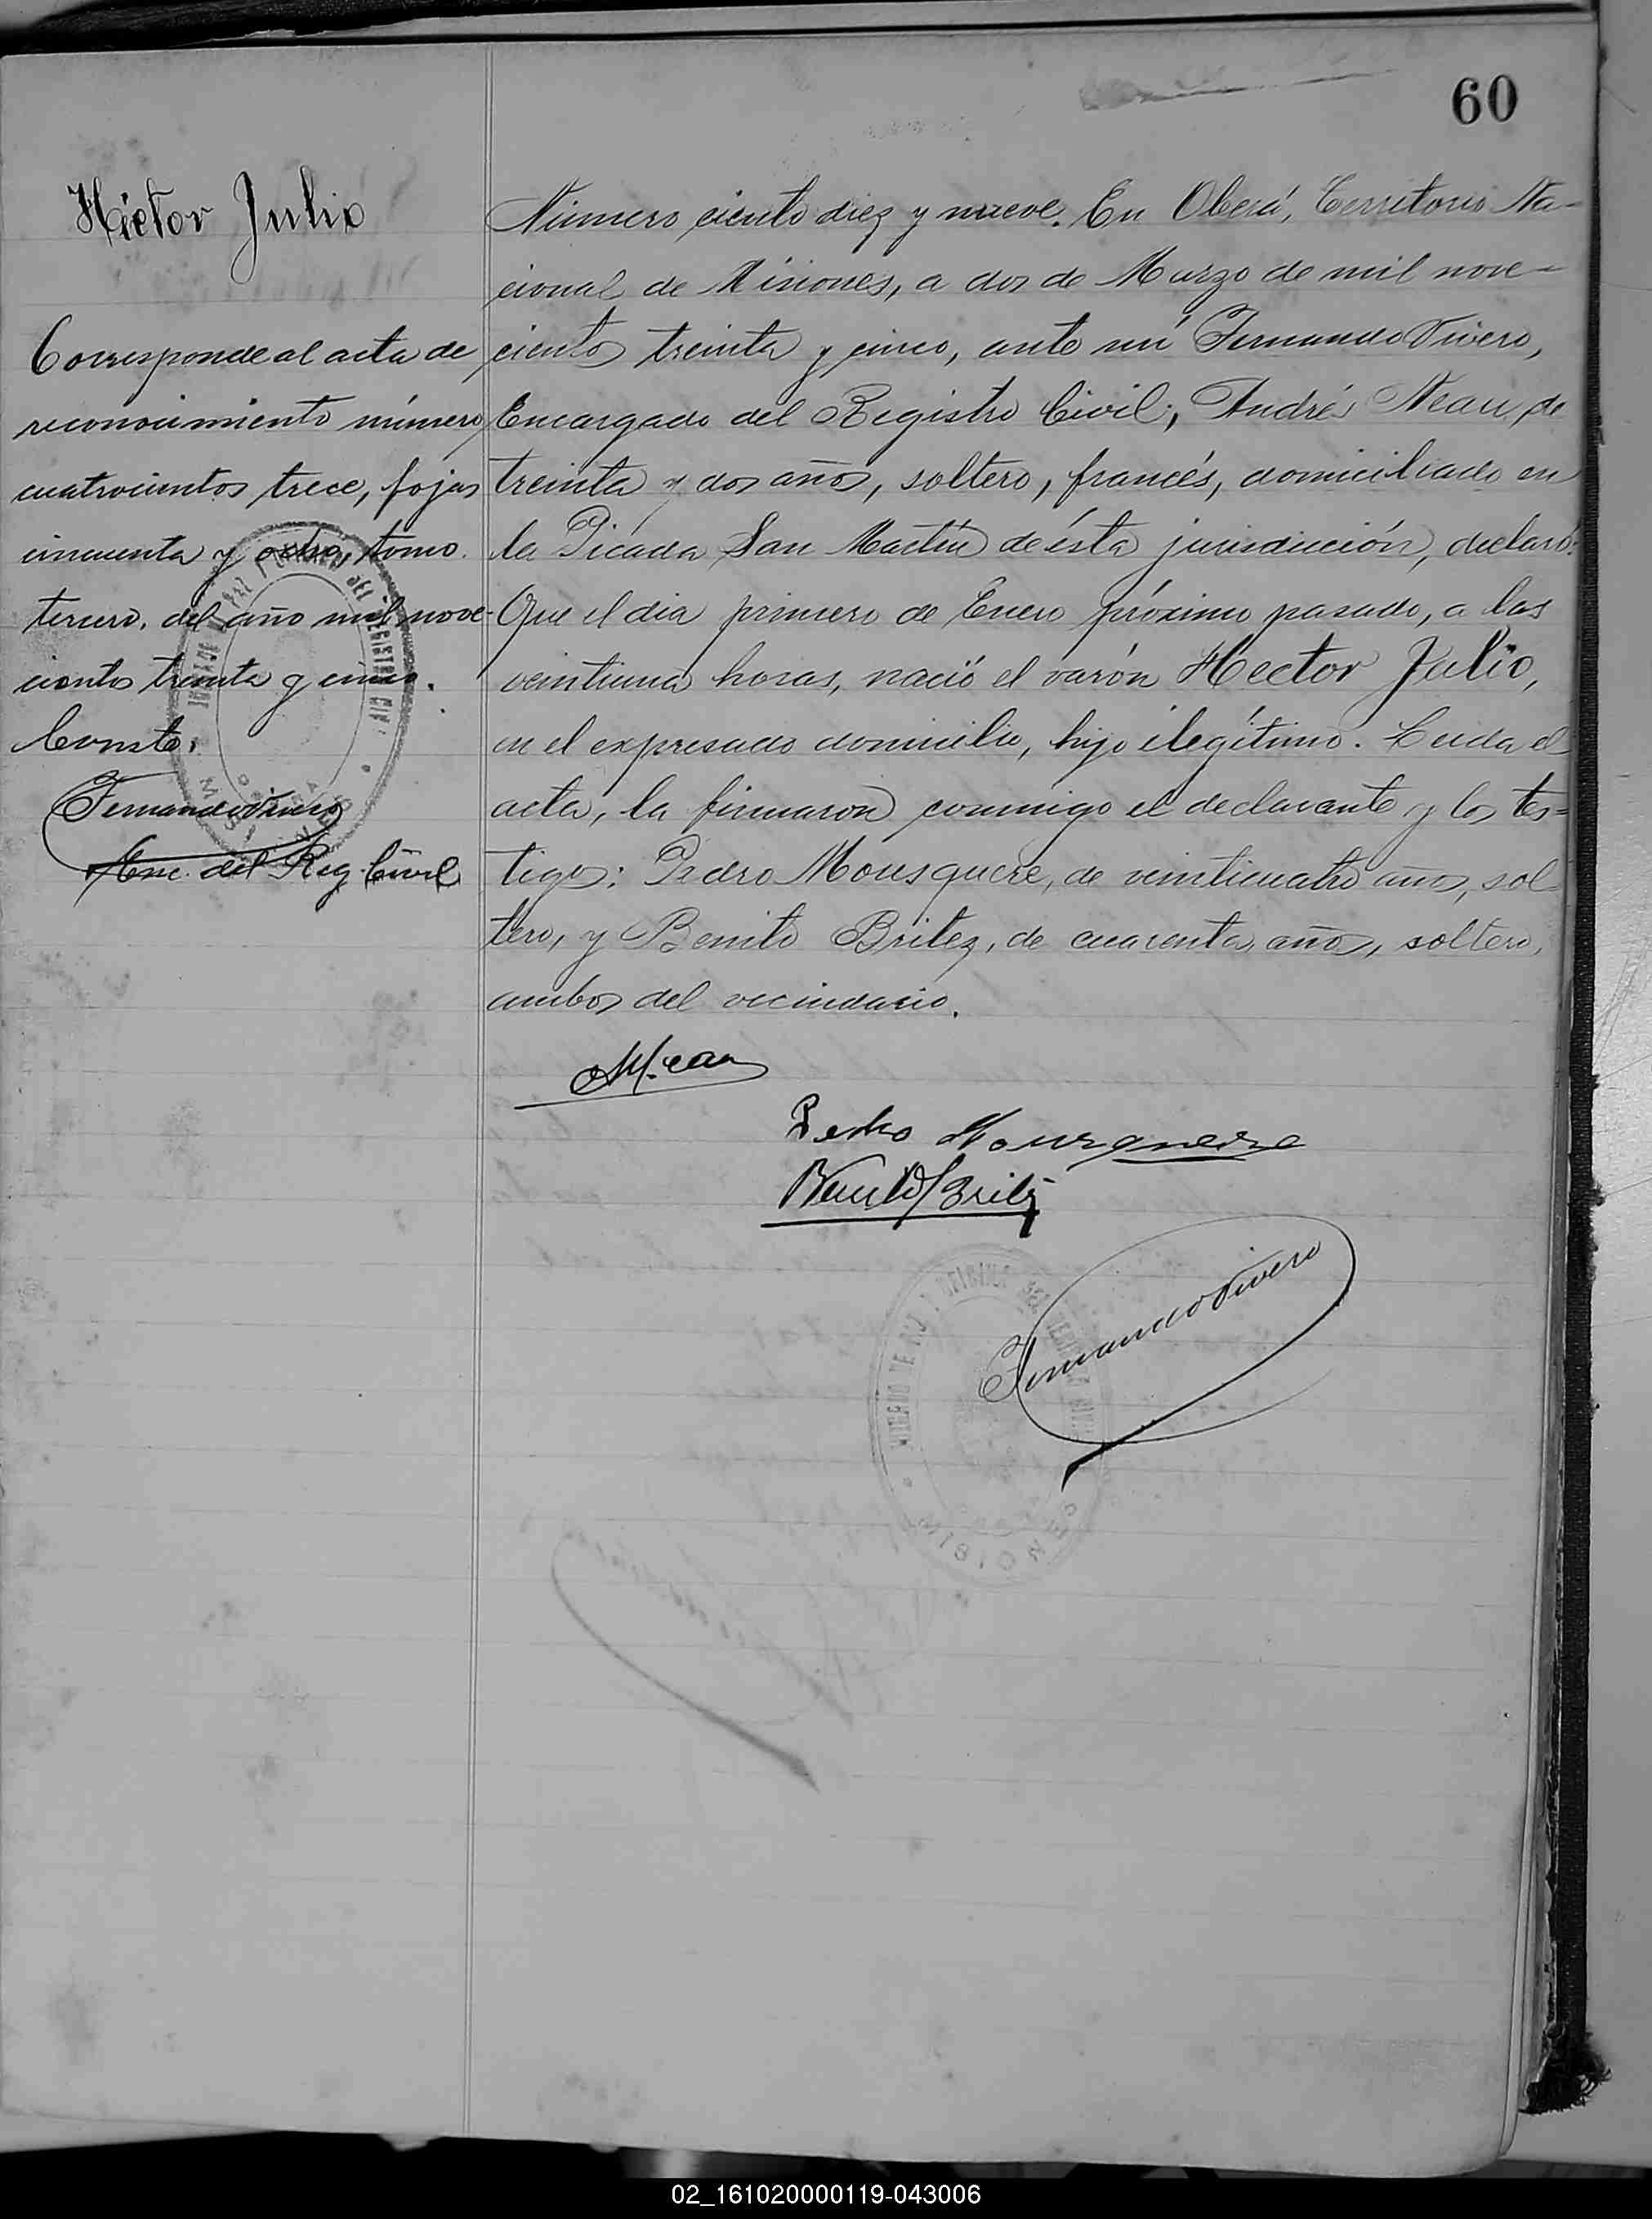 60
Héctor Julio
Corresponde al acta de
reconocimiento número
cuatrocientos trece, fojas
cincuenta y ocho, tomo
tercero, del año mil nove-
cientos treinta y cinco.
Consta.
Fernando Vivero
Enc. del Reg. Civil
Número ciento diez y nueve. En Oberá, Territorio Na-
cional de Misiones, a dos de Marzo de mil nove-
cientos treinta y cinco, ante mí Fernando Vivero,
Encargado del Registro Civil; Andrés Neau, de
treinta y dos años, soltero, francés, domiciliado en
la Picada San Martín de ésta jurisdicción, declaró:
Que el dia primero de Enero próximo pasado, a las
veintiuna horas, nació el varón Hector Julio,
en el expresado domicilio, hijo ilegítimo. Leida el
acta, la firmaron conmigo el declarante y los tes-
tigos: Pedro Mousquere, de veinticuatro años, sol-
tero, y Benito Britez, de cuarenta años, soltero,
ambos del vecindario.
Pedro Mousquere
Benito Britez
Fernando Vivero
MISIONES
02_161020000119-043006